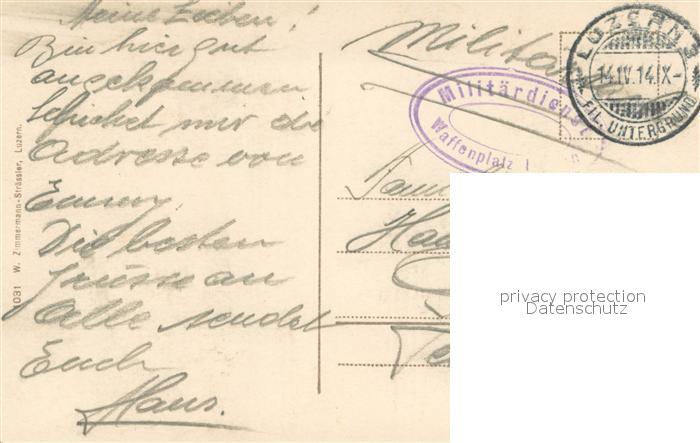 Meine Lieben!
Bin hier gut
angekommen
Schicket mir die
Adresse von
Emmy.
Die besten
Grüsse an
Alle sendet
Euch
Hans.
1031 W. Zimmermann-Strässler, Luzern.
Militär
Militärdienst
Waffenplatz
LUZERN
14.IV.14.IX-
FIL. UNTERGRUND
Fam
Ha
privacy protection
Datenschutz